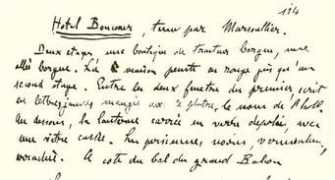 134
Hôtel Boncoeur, tenu par Marsoullier.
Deux étages, une boutique de traiteur borgne, une
allée borgne. La maison peinte en rouge jusqu'au
second étage. Entre les deux fenêtres du premier écrit
en lettres jaunes mangées le plâtre, le nom de l'hôtel.
Au dessous, la lanterne carrée en verre dépoli, avec
une vitre cassée. Les persiennes noires, vermoulues,
A côté du bal du grand Balcon